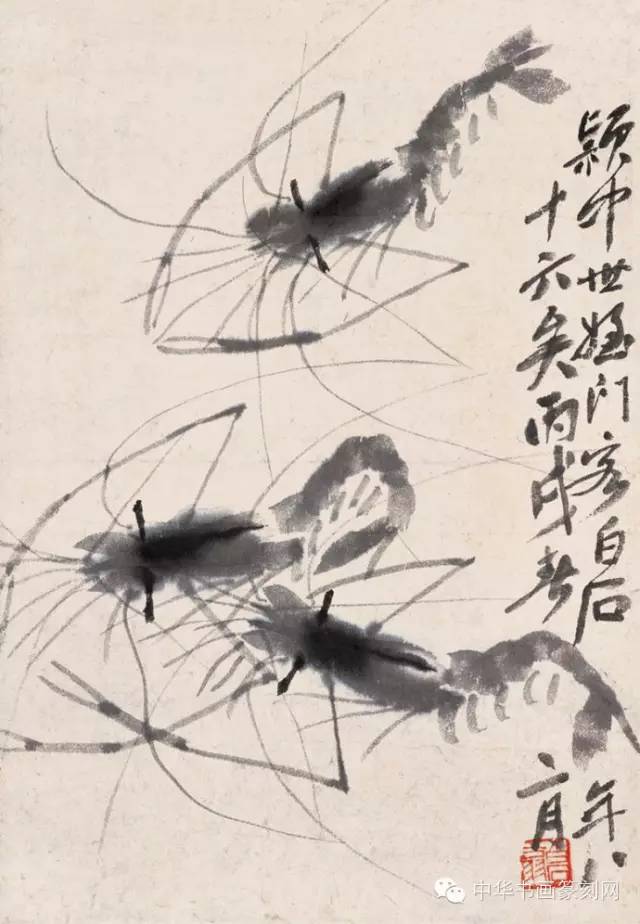 颖中世姪门客白石年八
十六矣丙戌春二月
中华书画篆刻网